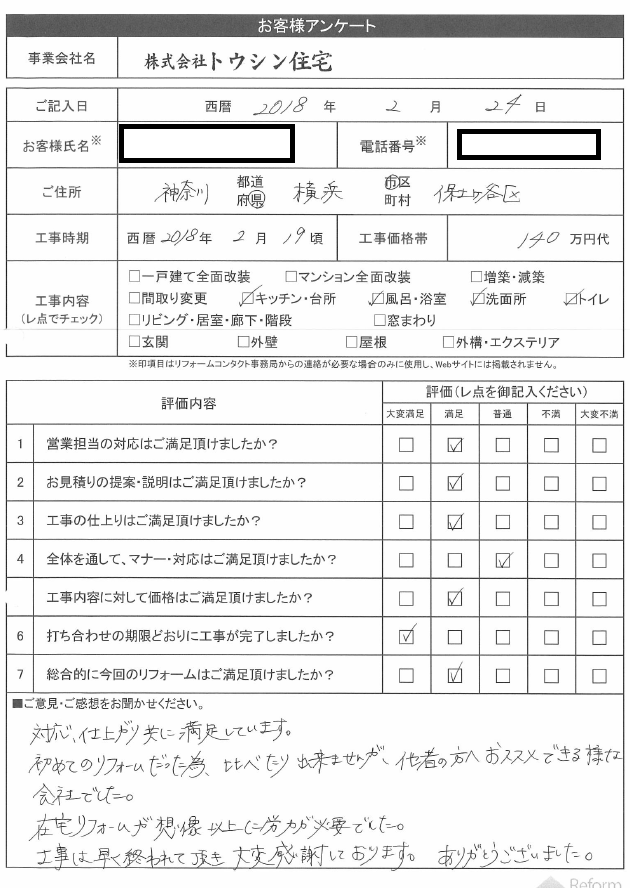 お客様アンケート
事業会社名 株式会社トウシン住宅
ご記入日 西暦 2018 年 2 月 24 日
お客様氏名※ 電話番号※
ご住所 神奈川 都道府県 横浜 市区町村 保土ヶ谷区
工事時期 西暦 2018年 2 月 19 頃 工事価格帯 140 万円代
工事内容(レ点でチェック)
□一戸建て全面改装 □マンション全面改装 □増築・減築
□間取り変更 ☑キッチン・台所 ☑風呂・浴室 ☑洗面所 ☑トイレ
□リビング・居室・廊下・階段 □窓まわり
□玄関 □外壁 □屋根 □外構・エクステリア
※印項目はリフォームコンタクト事務局からの連絡が必要な場合のみに使用し、Webサイトには掲載されません。
評価内容 評価(レ点を御記入ください)
大変満足 満足 普通 不満 大変不満
1 営業担当の対応はご満足頂けましたか? □ ☑ □ □ □
2 お見積りの提案・説明はご満足頂けましたか? □ ☑ □ □ □
3 工事の仕上りはご満足頂けましたか? □ ☑ □ □ □
4 全体を通して、マナー・対応はご満足頂けましたか? □ □ ☑ □ □
工事内容に対して価格はご満足頂けましたか? □ ☑ □ □ □
6 打ち合わせの期限どおりに工事が完了しましたか? ☑ □ □ □ □
7 総合的に今回のリフォームはご満足頂けましたか? □ ☑ □ □ □
■ご意見・ご感想をお聞かせください。
対応、仕上がり共に満足しています。
初めてのリフォームだった為、比べたり出来ませんが、他者の方へおススメできる様な
会社でした。
在宅リフォームが想像以上に労力が必要でした。
工事は早く終われて頂き大変感謝しております。 ありがとうございました。
Reform